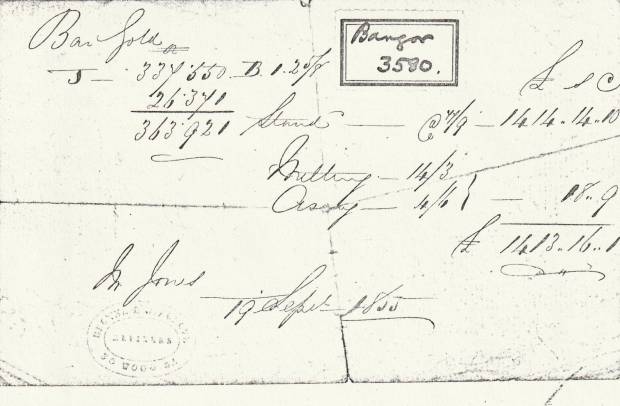 Bar Gold
Bangor
3580.
£ s
5 — 337.550 B.1.2 5/8
26.371
363.921 Stand — @ 77/9 — 1414.14.10
Melting — 14/3
Assay — 4/6 } — 18.9
£ 1413.16.1
M Jones
19 Sept 1855